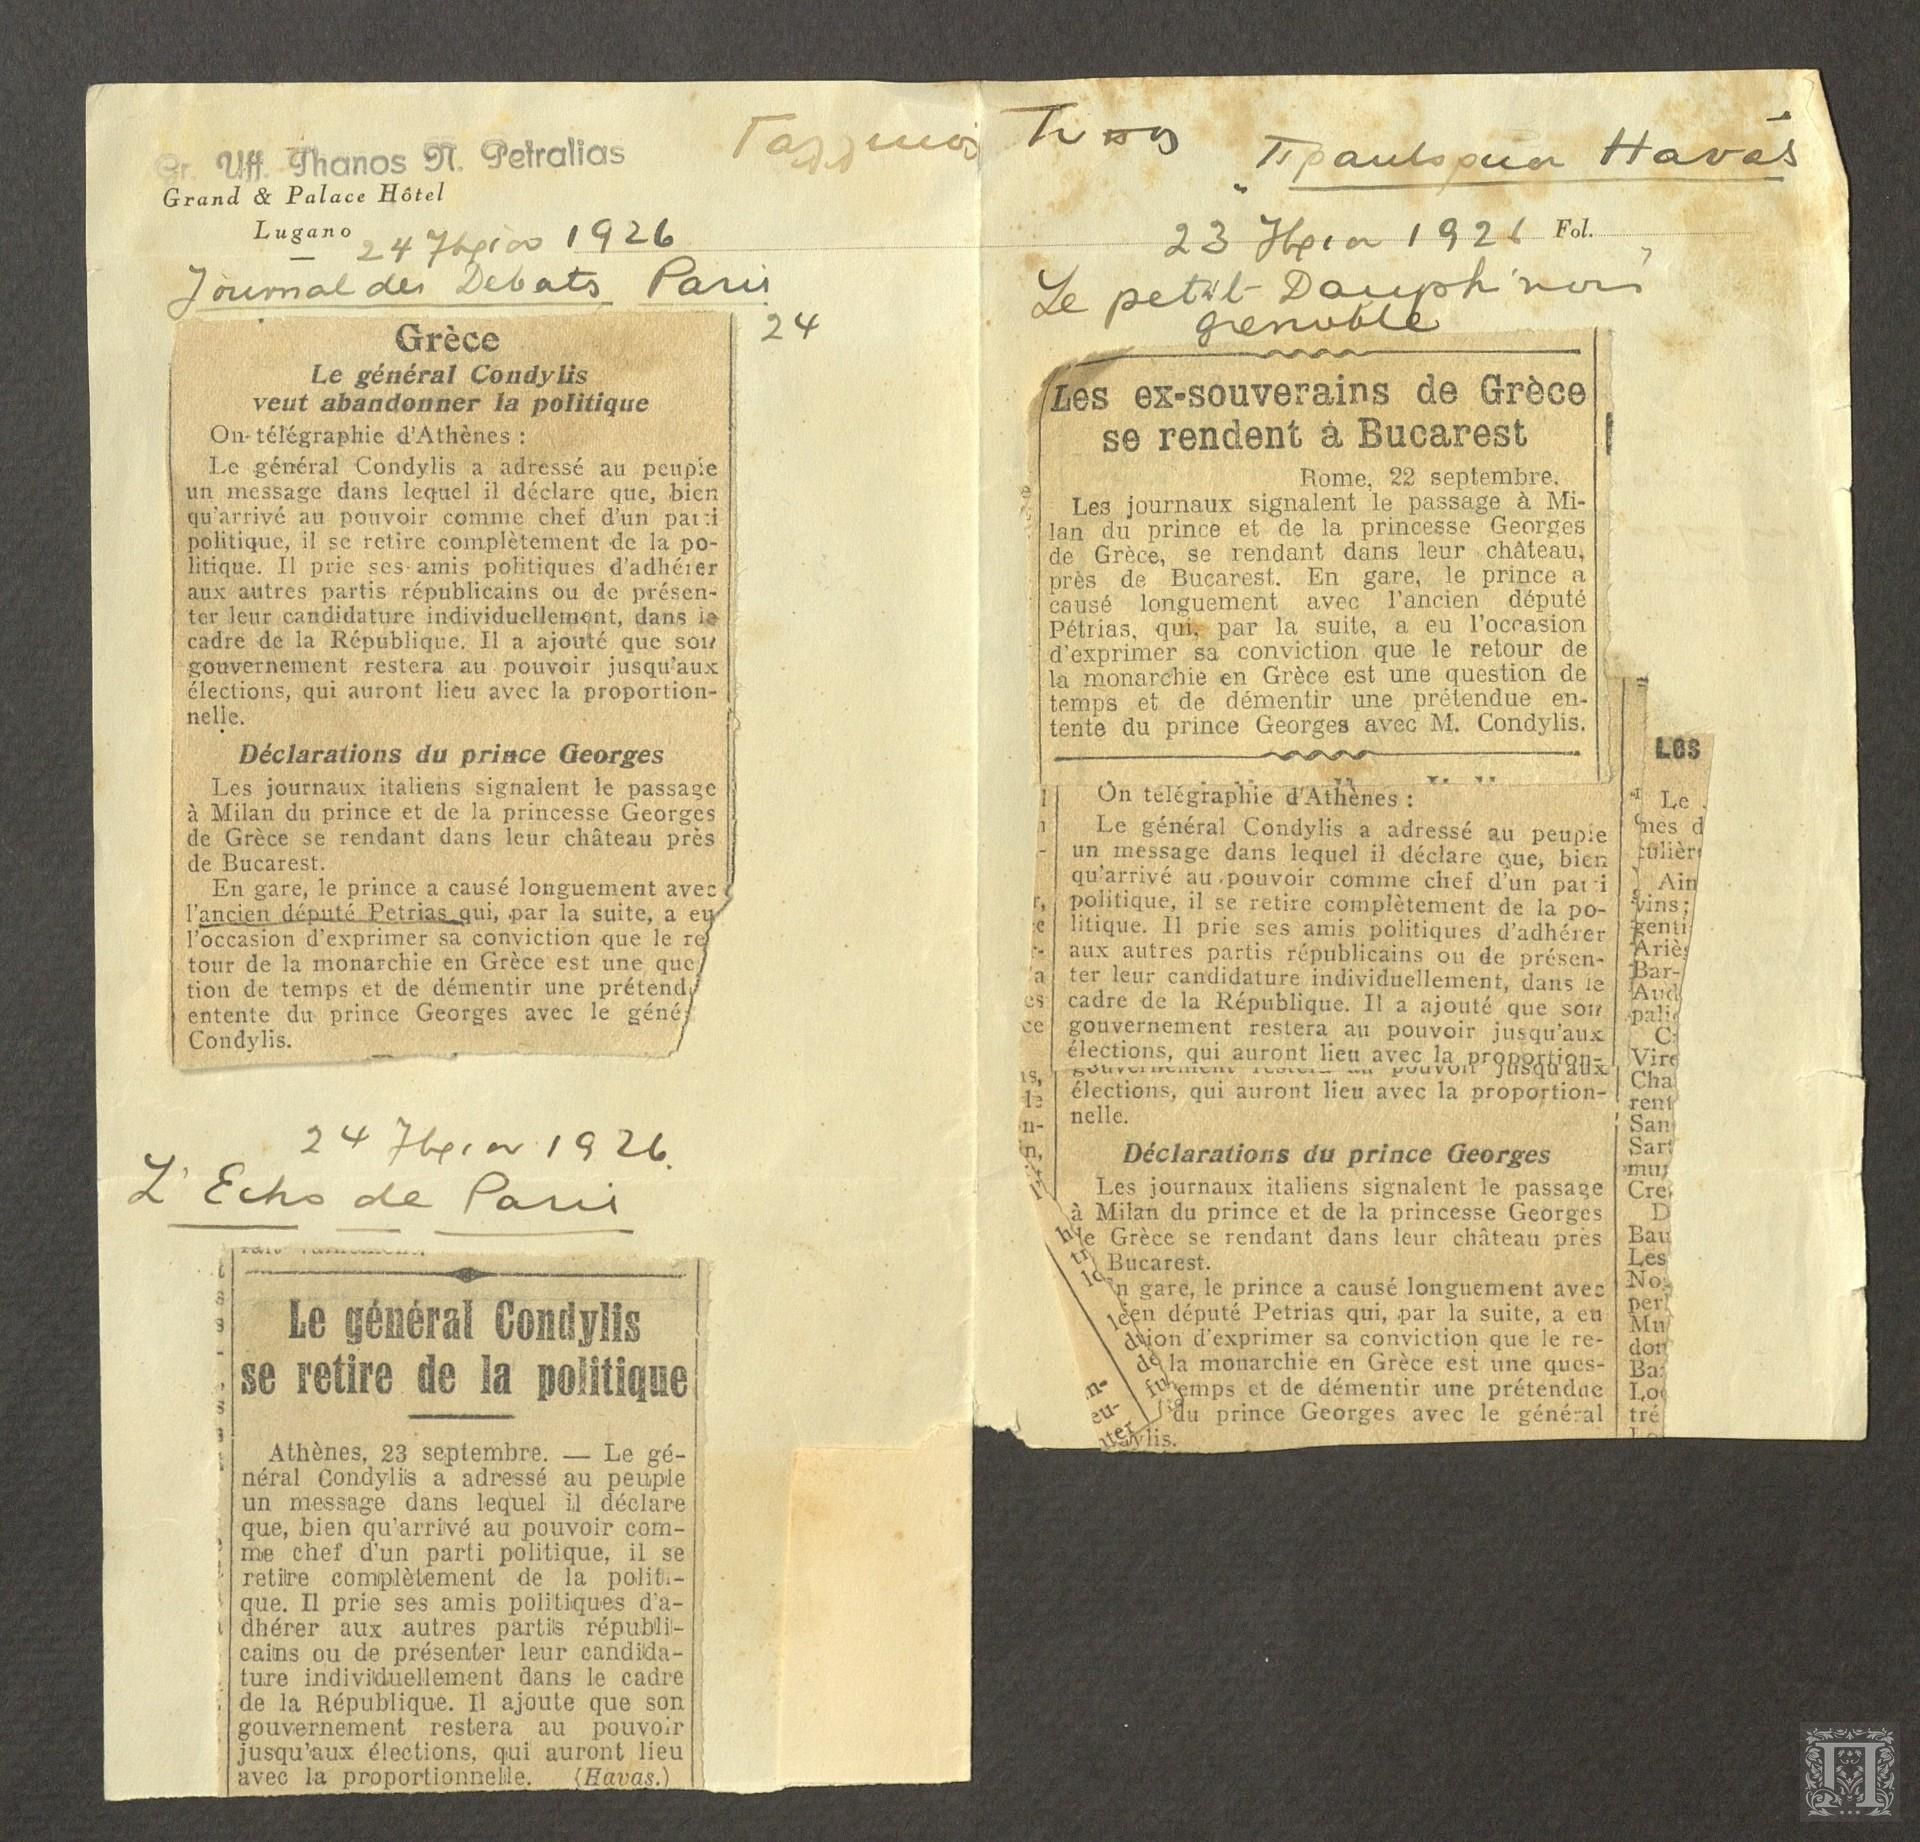 Gr. Uff. Thanos N. Petralias
Grand & Palace Hôtel
Lugano
24 7βρίου 1926
Journal des Debats Paris
24
Grèce
Le général Condylis
veut abandonner la politique
On télégraphie d'Athènes :
Le général Condylis a adressé au peuple
un message dans lequel il déclare que, bien
qu'arrivé au pouvoir comme chef d'un parti
politique, il se retire complètement de la po-
litique. Il prie ses amis politiques d'adhérer
aux autres partis républicains ou de présen-
ter leur candidature individuellement, dans le
cadre de la République. Il a ajouté que son
gouvernement restera au pouvoir jusqu'aux
élections, qui auront lieu avec la proportion-
nelle.
Déclarations du prince Georges
Les journaux italiens signalent le passage
à Milan du prince et de la princesse Georges
de Grèce se rendant dans leur château près
de Bucarest.
En gare, le prince a causé longuement avec
l'ancien député Petrias qui, par la suite, a eu
l'occasion d'exprimer sa conviction que le re
tour de la monarchie en Grèce est une que
tion de temps et de démentir une prétend
entente du prince Georges avec le géné
Condylis.
24 7βρίου 1926.
L'Echo de Paris
Le général Condylis
se retire de la politique
Athènes, 23 septembre. — Le gé-
néral Condylis a adressé au peuple
un message dans lequel il déclare
que, bien qu'arrivé au pouvoir com-
me chef d'un parti politique, il se
retire complètement de la politi-
que. Il prie ses amis politiques d'a-
dhérer aux autres partis républi-
cains ou de présenter leur candida-
ture individuellement dans le cadre
de la République. Il ajoute que son
gouvernement restera au pouvoir
jusqu'aux élections, qui auront lieu
avec la proportionnelle. (Havas.)
Γαλλικός Τύπος
Πρακτορείον Havas
23 7βρίου 1926 Fol.
Le petit Dauphinois
grenoble
Les ex-souverains de Grèce
se rendent à Bucarest
Rome, 22 septembre.
Les journaux signalent le passage à Mi-
lan du prince et de la princesse Georges
de Grèce, se rendant dans leur château,
près de Bucarest. En gare, le prince a
causé longuement avec l'ancien député
Pétrias, qui, par la suite, a eu l'occasion
d'exprimer sa conviction que le retour de
la monarchie en Grèce est une question de
temps et de démentir une prétendue en-
tente du prince Georges avec M. Condylis.
On télégraphie d'Athènes :
Le général Condylis a adressé au peuple
un message dans lequel il déclare que, bien
qu'arrivé au pouvoir comme chef d'un parti
politique, il se retire complètement de la po-
litique. Il prie ses amis politiques d'adhérer
aux autres partis républicains ou de présen-
ter leur candidature individuellement, dans le
cadre de la République. Il a ajouté que son
gouvernement restera au pouvoir jusqu'aux
élections, qui auront lieu avec la proportion-
gouvernement restera au pouvoir jusqu'aux
élections, qui auront lieu avec la proportion-
nelle.
Déclarations du prince Georges
Les journaux italiens signalent le passage
à Milan du prince et de la princesse Georges
de Grèce se rendant dans leur château près
Bucarest.
n gare, le prince a causé longuement avec
en député Petrias qui, par la suite, a eu
ion d'exprimer sa conviction que le re-
la monarchie en Grèce est une ques-
emps et de démentir une prétendue
du prince Georges avec le général
ylis.
Les
Le
mes d
culièr
Ain
vins;
genti
Ariè
Bar-
Aud
pali
C
Vire
Cha
rent
San
Sart
mur
Cre
D
Bau
Les
No
per
Mu
don
Ba
Lo
tré